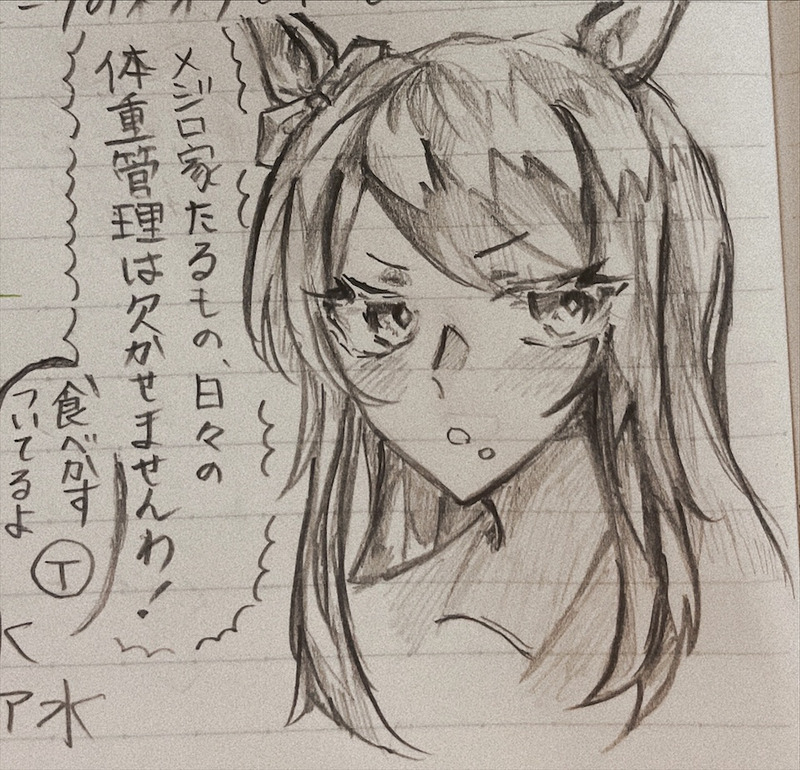 メジロ家たるもの、日々の
体重管理は欠かせませんわ!
食べかす
ついてるよ
T
く
ア水